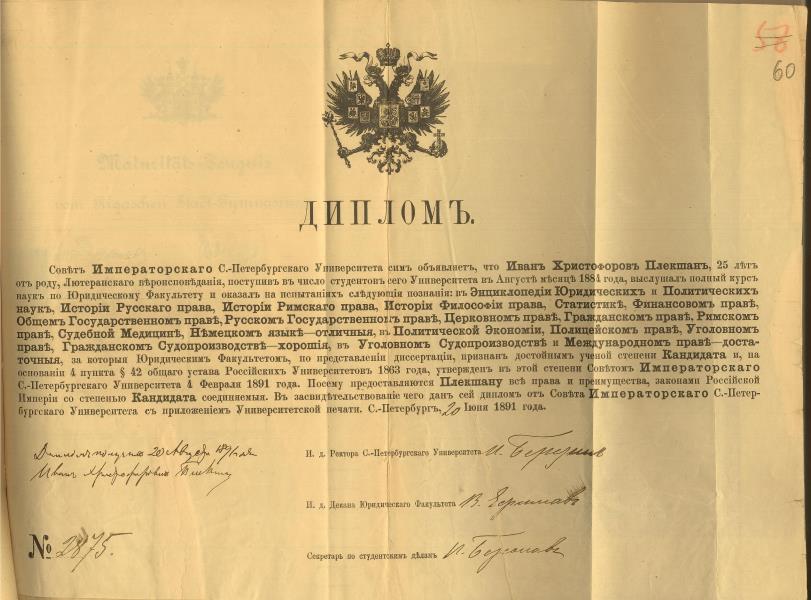 58
60
ДИПЛОМЪ.
Совѣтъ Императорскаго С.-Петербургскаго Университета симъ объявляетъ, что Иванъ Христофоровъ Плекшанъ, 25 лѣтъ
отъ роду, Лютеранскаго вѣроисповѣданія, поступивъ въ число студентовъ сего Университета въ Августѣ мѣсяцѣ 1884 года, выслушалъ полный курсъ
наукъ по Юридическому Факультету и оказалъ на испытаніяхъ слѣдующія познанія: въ Энциклопедіи Юридическихъ и Политическихъ
наукъ, Исторіи Русскаго права, Исторіи Римскаго права, Исторіи Философіи права, Статистикѣ, Финансовомъ правѣ,
Общемъ Государственномъ правѣ, Русскомъ Государственномъ правѣ, Церковномъ правѣ, Гражданскомъ правѣ, Римскомъ
правѣ, Судебной Медицинѣ, Нѣмецкомъ языкѣ—отличныя, въ Политической Экономіи, Полицейскомъ правѣ, Уголовномъ
правѣ, Гражданскомъ Судопроизводствѣ—хорошія, въ Уголовномъ Судопроизводствѣ и Международномъ правѣ—доста-
точныя, за которыя Юридическимъ Факультетомъ, по представленіи диссертаціи, признанъ достойнымъ ученой степени Кандидата и, на
основаніи 4 пункта § 42 общаго устава Россійскихъ Университетовъ 1863 года, утвержденъ въ этой степени Совѣтомъ Императорскаго
С.-Петербургскаго Университета 4 Февраля 1891 года. Посему предоставляются Плекшану всѣ права и преимущества, законами Россійской
Имперіи со степенью Кандидата соединяемыя. Въ засвидѣтельствованіе чего данъ сей дипломъ отъ Совѣта Императорскаго С.-Петер-
бургскаго Университета съ приложеніемъ Университетской печати. С.-Петербургъ, 20 Іюня 1891 года.
Дипломъ получилъ 20 Августа 1891 года
Иванъ Христофоровичъ Плекшанъ
И. д. Ректора С.-Петербургскаго Университета И.
И. д. Декана Юридическаго Факультета В.
№ 2875.
Секретарь по студентскимъ дѣламъ